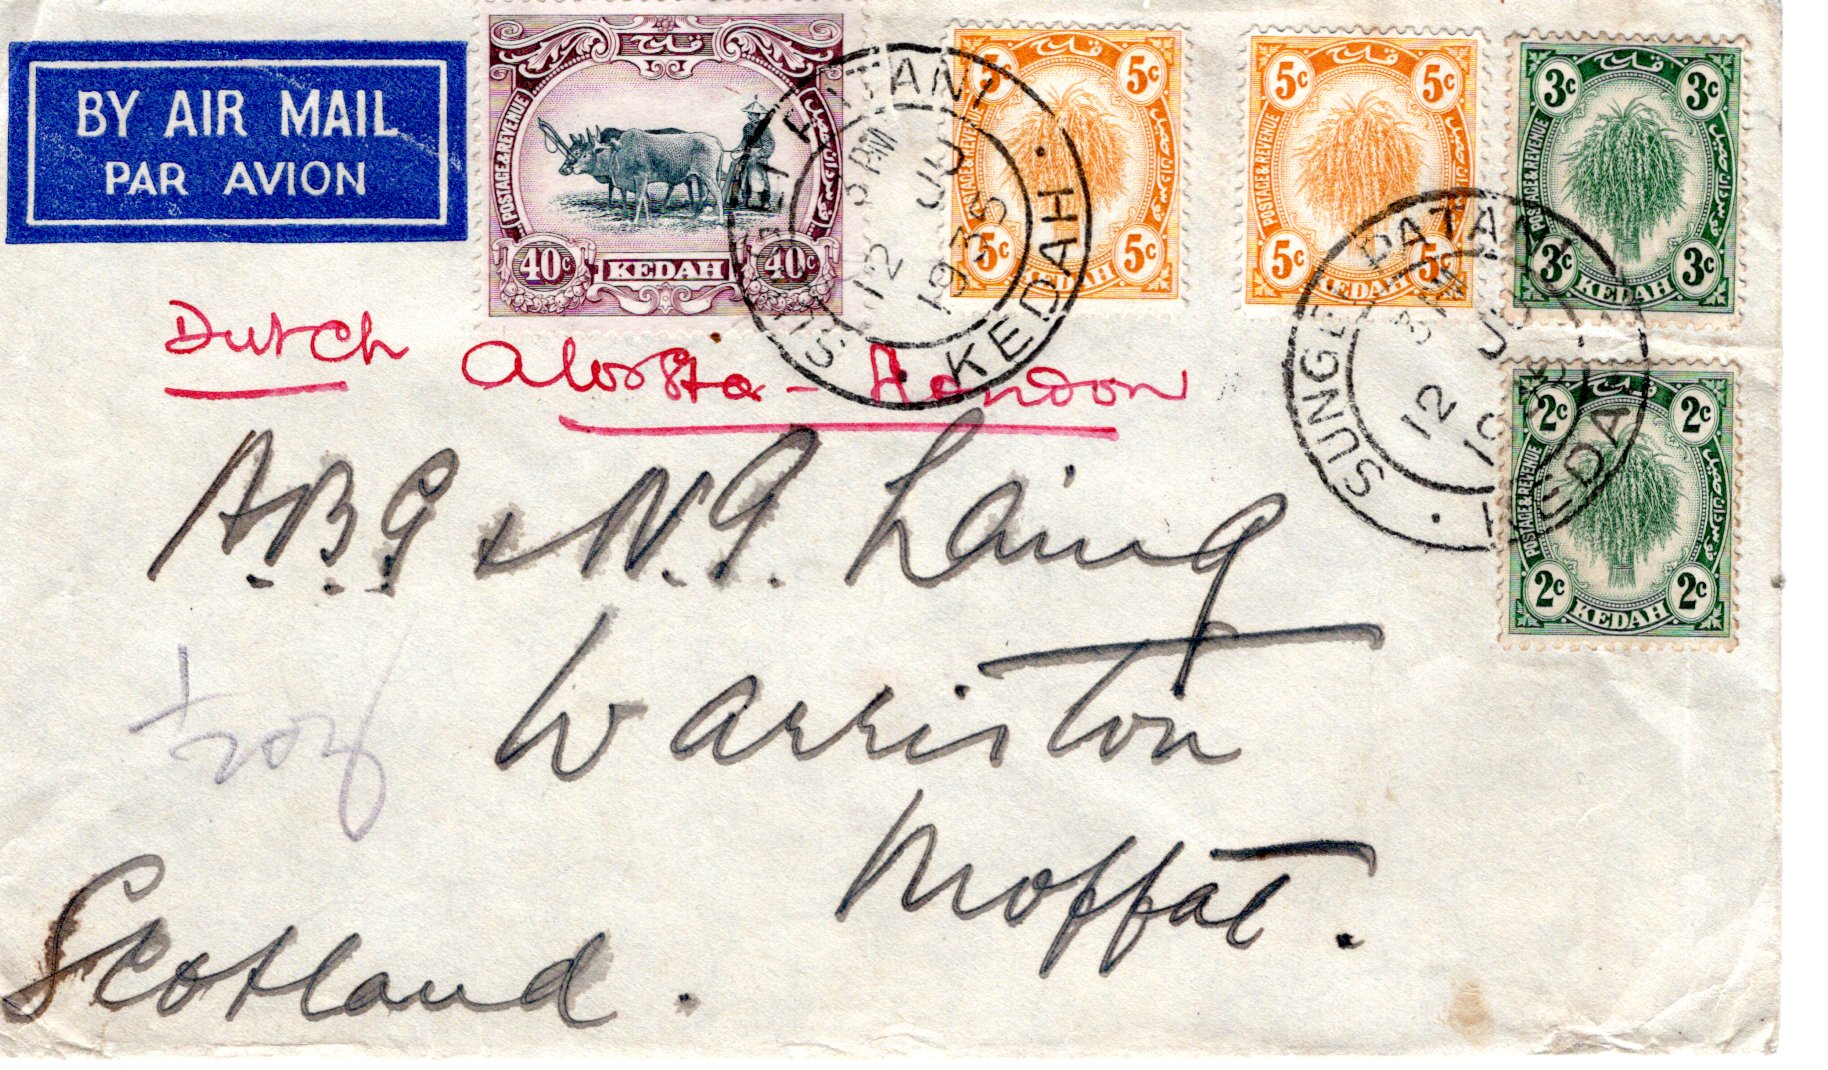 BY AIR MAIL
PAR AVION
قدح
POSTAGE & REVENUE
40c KEDAH 40c
5c
POSTAGE & REVENUE
5c KEDAH 5c
5c 5c
POSTAGE & REVENUE
5c KEDAH 5c
3c 3c
POSTAGE & REVENUE
3c KEDAH 3c
2c 2c
POSTAGE & REVENUE
2c KEDAH 2c
KEDAH
3 PM
12 JU
1935
SUNGEI PATANI
3 PM
12 JU
Dutch Alorsta - London
A.B.G & N.G. Laing
Warriston
Moffat.
Scotland.